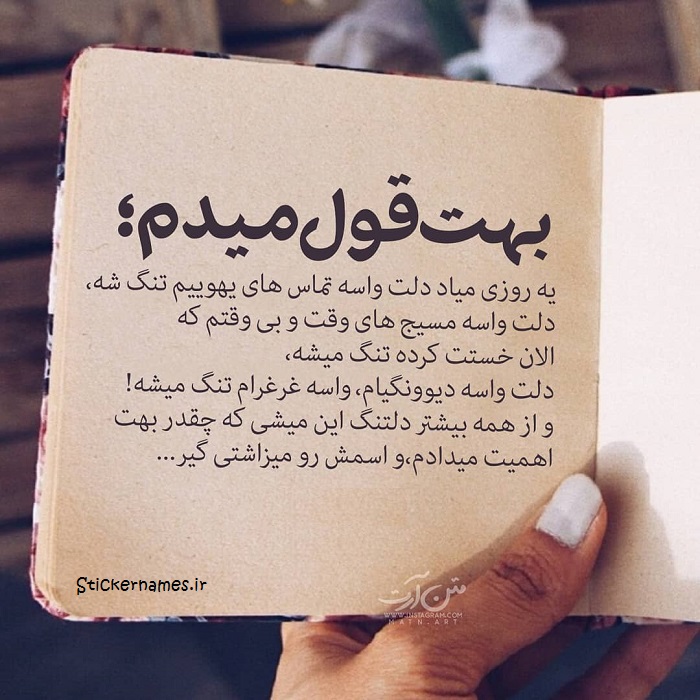 بهت قول میدم؛
یه روزی میاد دلت واسه تماس های یهوییم تنگ شه،
دلت واسه مسیج های وقت و بی وقتم که
الان خستت کرده تنگ میشه،
دلت واسه دیوونگیام، واسه غرغرام تنگ میشه!
و از همه بیشتر دلتنگ این میشی که چقدر بهت
اهمیت میدادم،و اسمش رو میزاشتی گیر...
Stickernames.ir
متن آرت
WWW.INSTAGRAM.COM
MATN.ART